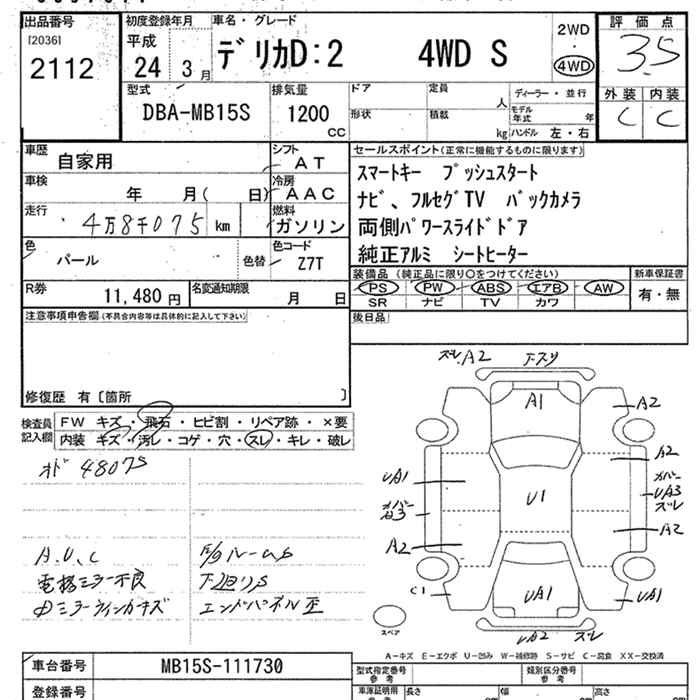 出品番号
[2036]
2112
初度登録年月
平成
24 3月
車名・グレード
デリカD:2 4WD S
2WD
・
4WD
評価点
3.5
外装 内装
C C
型式
DBA-MB15S
排気量
1200
CC
ドア
定員
人
ディーラー・並行
形状
積載
kg
モデル年式 年
ハンドル 左・右
車歴
自家用
シフト
AT
車検
年 月( 日)
冷房
AAC
走行
4万8千075 km
燃料
ガソリン
色
パール
色替
色コード
Z7T
R券
11,480 円
名変通知期限
月 日
セールスポイント(正常に機能するものに限ります)
スマートキー プッシュスタート
ナビ、フルセグTV バックカメラ
両側パワースライドドア
純正アルミ シートヒーター
装備品(純正品に限り○をつけてください)
新車保証書
PS PW ABS エアB AW
SR ナビ TV カワ
有・無
注意事項申告欄(不具合内容等は具体的に記入して下さい)
後日品
修復歴 有〔箇所 〕
検査員記入欄
FW キズ・飛石・ヒビ割・リペア跡・×要
内装 キズ・汚レ・コゲ・穴・スレ・キレ・破レ
オド 48075
A.U.C
電格ミラー不良
ミラーウィンカキズ
下回りS
エンドパネル歪
ズレ.A2
下スリ
A1
A2
A2
UA1
U1
カバー
UA3
ズレ
カバー
A2
A2
C1
UA1
UA1
UA2 ズレ
スペア
A-キズ E-エクボ U-凹み W-補修跡 S-サビ C-腐食 XX-交換済
車台番号
MB15S-111730
型式指定番号
参考
類別区分番号
参考
登録番号
車庫証明用
参考
長さ
幅
高さ